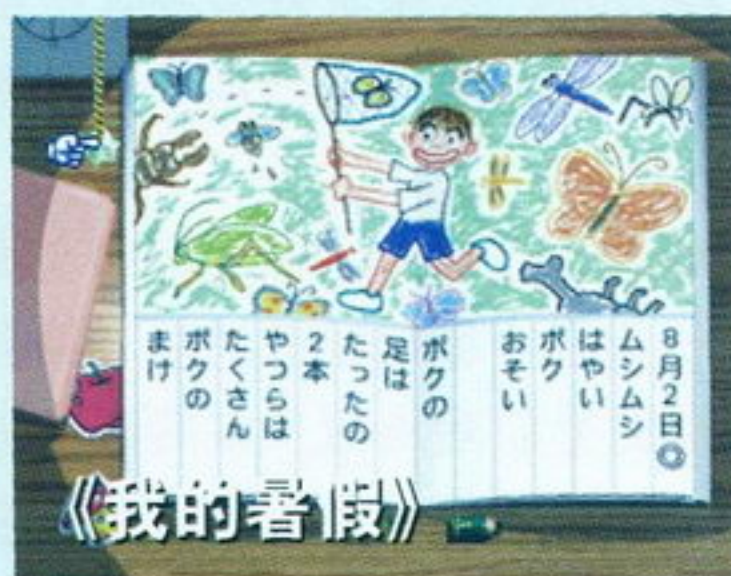 8月2日◎
ムシムシ
はやい
ボク
おそい
ボクの
足は
たったの
2本
やつらは
たくさん
ボクの
まけ
《我的暑假》